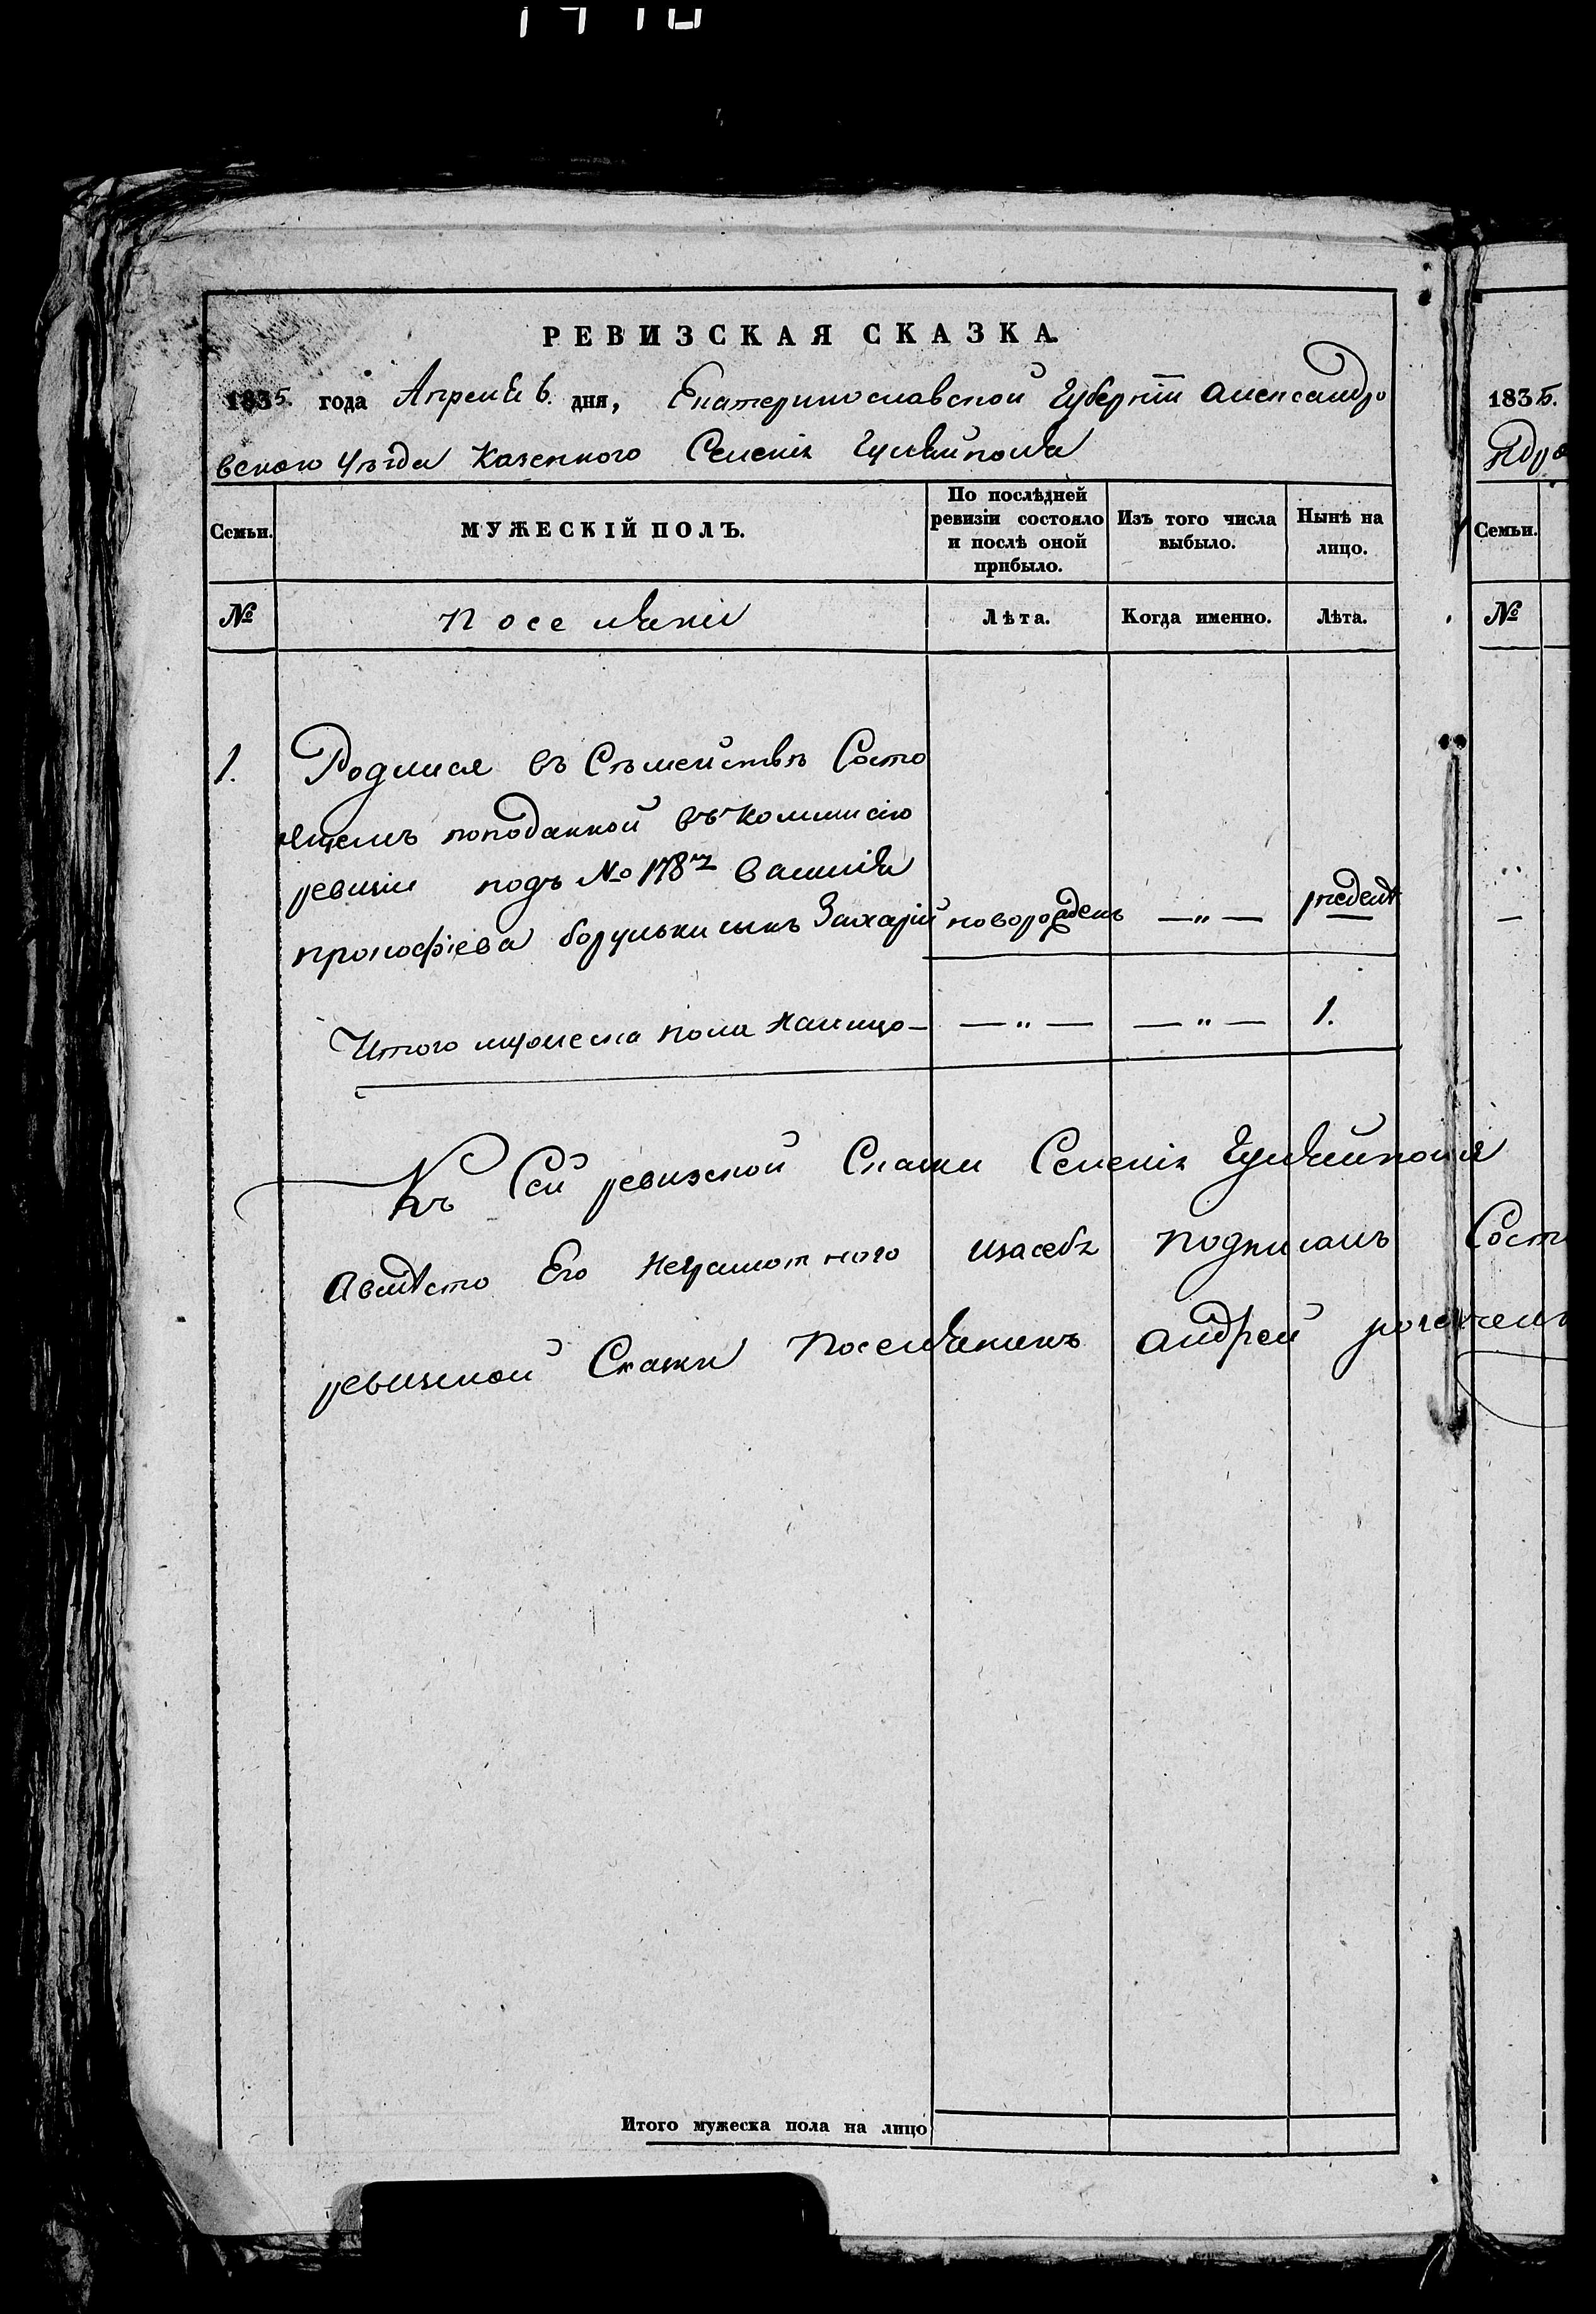 РЕВИЗСКАЯ СКАЗКА.
1835. года Апреля 6. дня, Екатеринославской Губернiи Александро
вского Уѣзда Казенного Селенiя Гуляйполя
Семьи.
МУЖЕСКІЙ ПОЛЪ.
По послѣдней
ревизіи состояло
и послѣ оной
прибыло.
Изъ того числа
выбыло.
Нынѣ на
лицо.
№
Поселяне
Лѣта.
Когда именно.
Лѣта.
1. Родился въ Съмействѣ Состо
ящемъ поподанной въ комисiю
ревизiи подъ № 178мъ Василiя
прокофiева борульки сынъ Захарiй новорожденъ — „ — 1 недели
Итого мужеска пола налицо — — „ — — „ — 1.
Къ Сей ревизской Скаски Селенiя Гуляйполя
авмѣсто Его неграмотного изасебя подписалъ Сост
ревизской Скаски Поселянинъ андрей
Итого мужеска пола на лицо
1835.
Семьи.
№